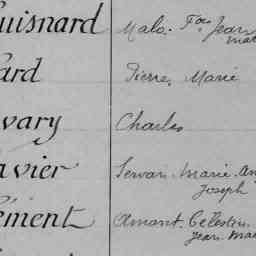 uisnard Malo. Fois Jean
Mar
ard Pierre Marie
vary Charles
avier Servan. Marie. An
Joseph
ément Amant. Célestin.
Jean Mar